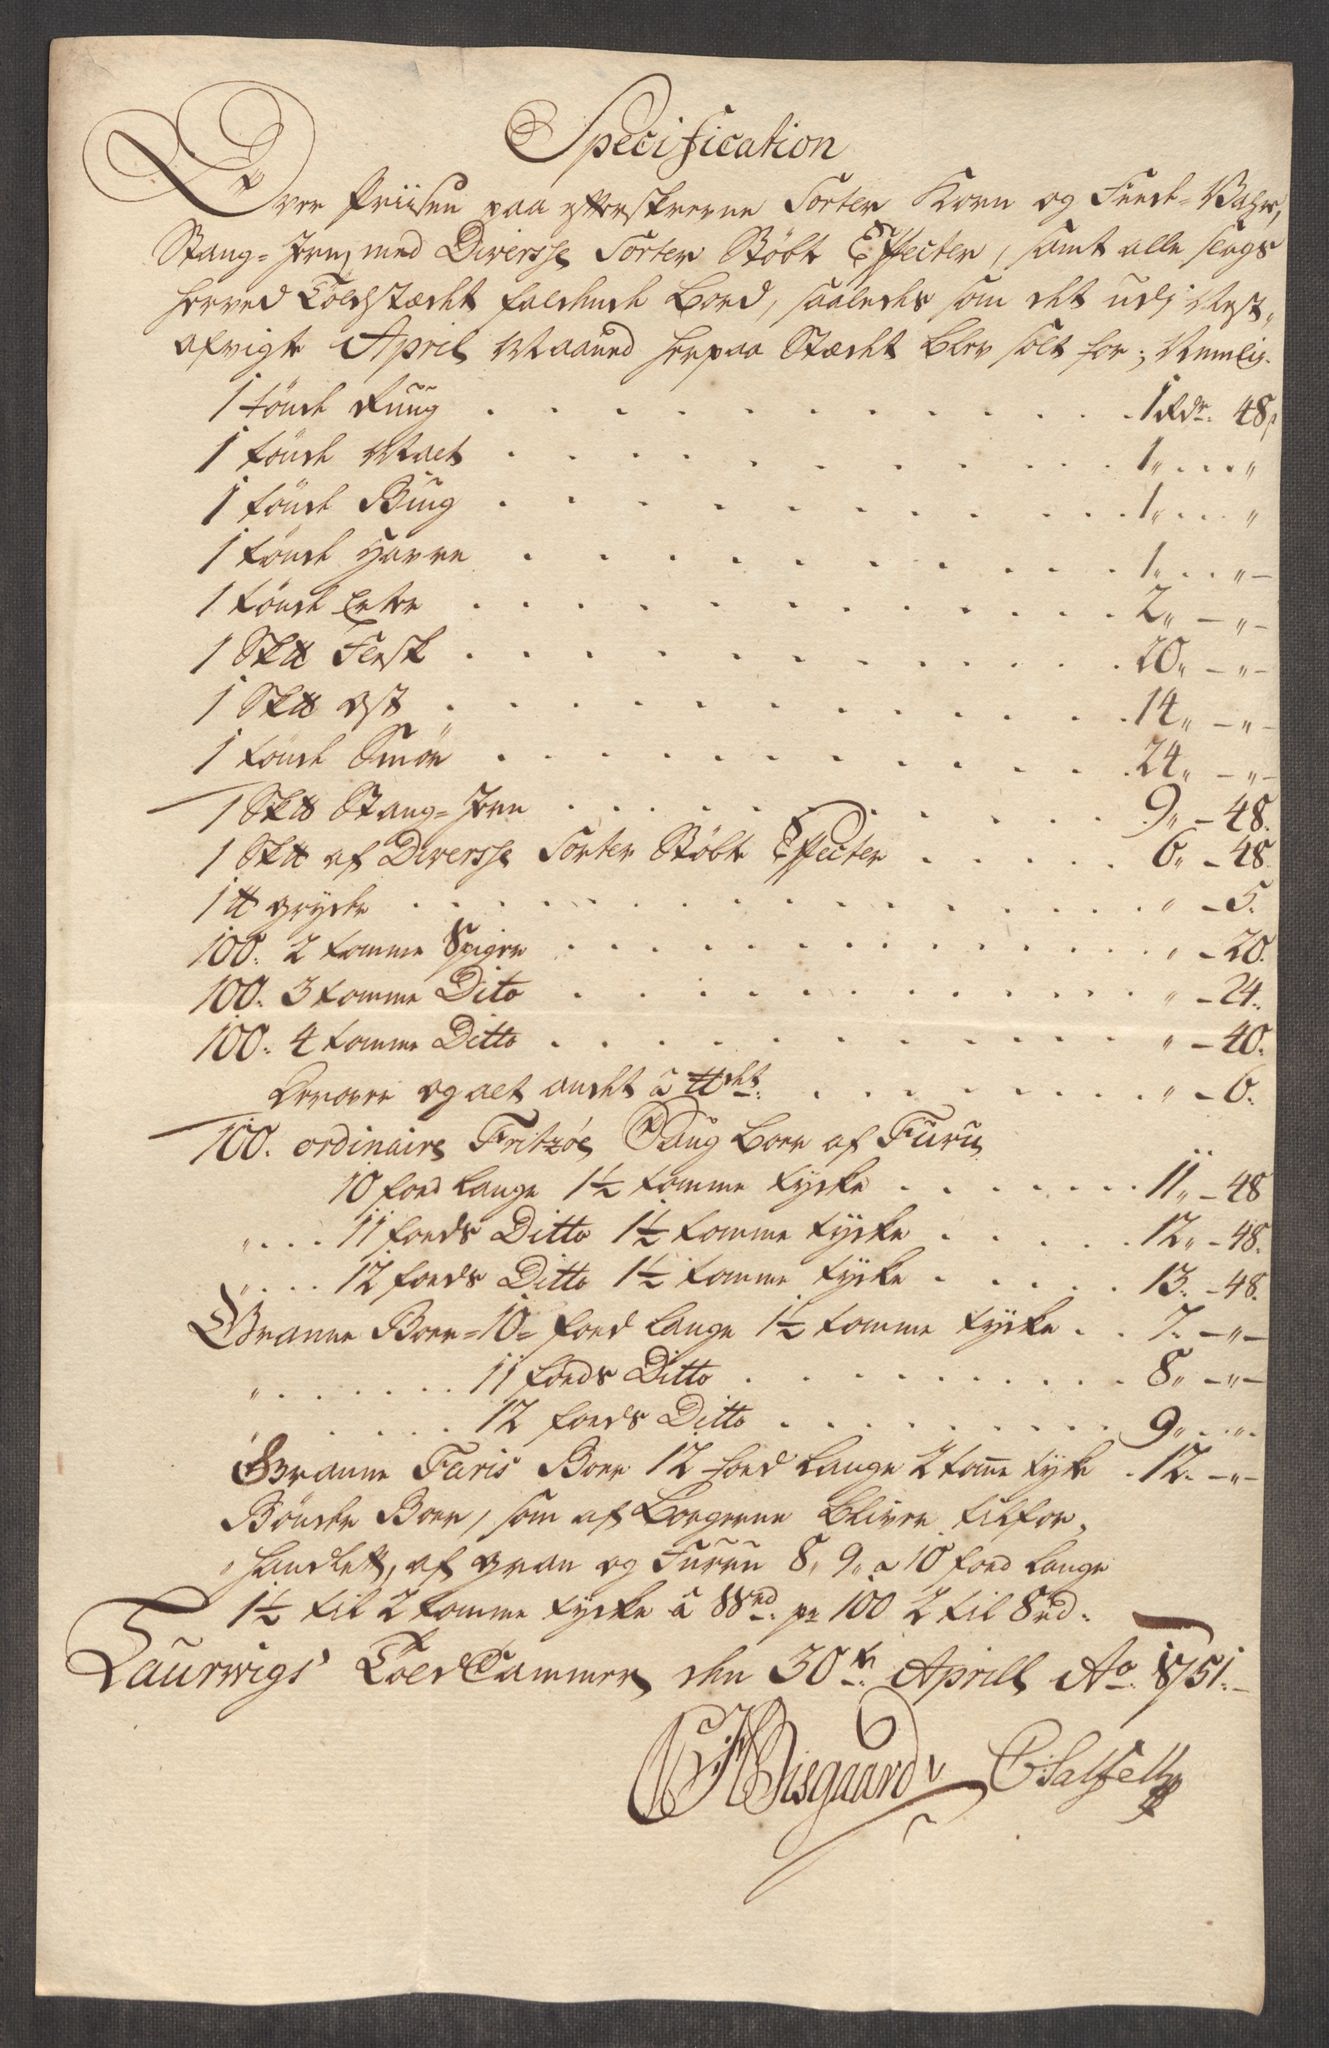 Specification
Over Priisen paa efterskrevne Sorter Korn og Feede-Vahre,
Stang-Jern, med Diversse Sorter Støbte Effecter, samt alle slags
herved Toldstædet faldende Bord, saaledes som det udj Nest-
afvigte April Maaned herpaa Stædet blev solt for; Nemlig.
1 tønde Rug . . . 1 Rdr. 48 s
1 tønde Malt . . . 1 „ . . . „
1 tønde Bÿg . . . 1 „ . . . „
1 tønde Havre . . . 1 „ . . „ —
1 tønde Erter . . . 2 „ — „ —
1 Sk℔ Flesk . . . 20 „ — „ —
1 Sk℔ Ost . . . 14 „ — „ —
1 tønde Smør . . . 24 „ — „ —
1 Sk℔ Stang-Jern . . . 9 „ — 48.
1 Sk℔ af Diversse Sorter Støbte Effecter . . . 6 „ — 48.
1 ℔ Grÿder . . . „ — 5.
100. 2 tomme Spiger . . . „ — 20.
100. 3 tomme Dito . . . „ — 24.
100. 4 tomme Ditto . . . „ — 40.
og alt andet â ℔det . . . „ — 6.
100. ordinaire Fritzøe Saug Boer af Furu
10 foed lange 1½ tomme tÿcke . . . 11 „ — 48
„ . . . 11 foeds Ditto 1½ tomme tÿcke . . . 12 „ — 48.
„ . . . 12 foeds Ditto 1½ tomme tÿcke . . . 13. — 48.
Granne Boer = 10 = foed lange 1½ tomme tÿcke . . 7. — „ —
„ . . . 11 foeds Ditto . . . 8 „ — „ —
„ . . . 12 foeds Ditto . . . 9 „ . . „ .
Granne Faris Boer 12 foed lange 2 tomme tyke . 12. — „ —
Bønder Boer, som af Borgerne bliver tilfor-
handlett, af gran og Furru 8, 9 „ a 10 foed lange
1½ til 2 tomme tÿcke â pr 100 2 til 8 rd.
Laurwigs Told Cammer, den 30te Aprill Ao. 1751. —
Wisgaard C Salfelt